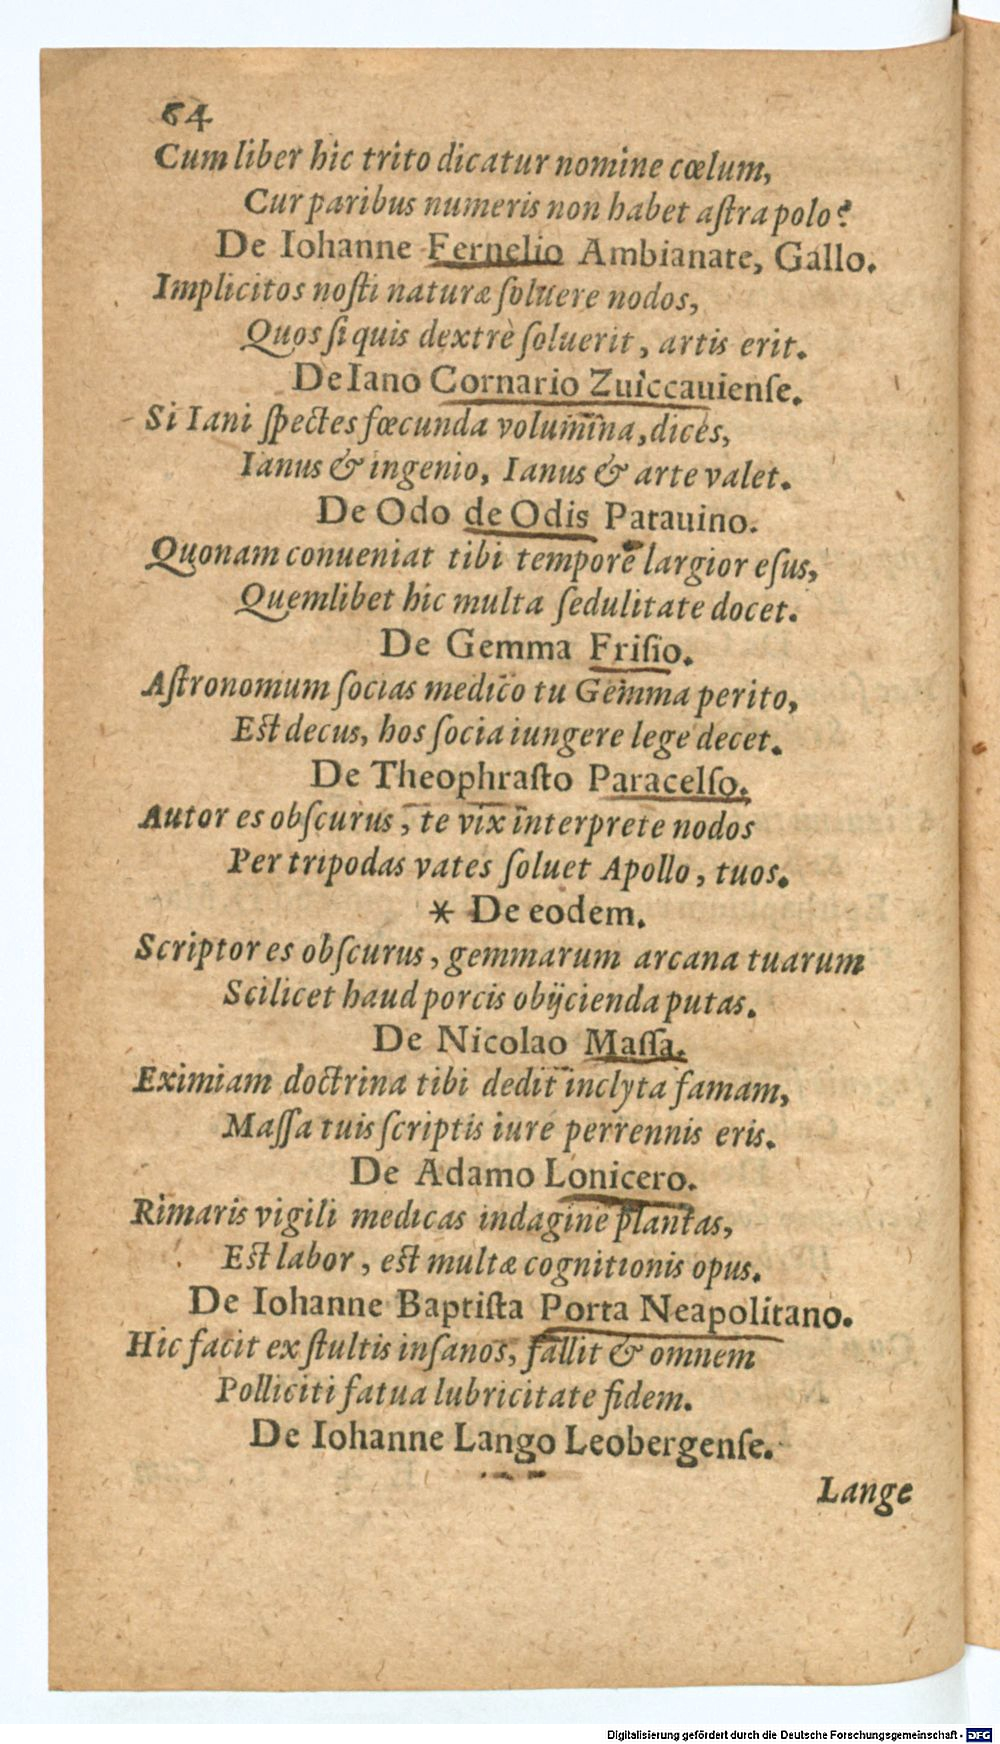 64
Cum liber hic trito dicatur nomine cœlum,
Cur paribus numeris non habet aſtra polo?
De Iohanne Fernelio Ambianate, Gallo.
Implicitos noſti naturæ ſoluere nodos,
Quos ſi quis dextrè ſoluerit, artis erit.
De Iano Cornario Zuiccauienſe.
Si Iani ſpectes fœcunda volumina, dices,
Ianus & ingenio, Ianus & arte valet.
De Odo de Odis Patauino.
Quonam conueniat tibi tempore largior eſus,
Quemlibet hic multa ſedulitate docet.
De Gemma Friſio.
Aſtronomum ſocias medico tu Gemma perito,
Eſt decus, hos ſocia iungere lege decet.
De Theophraſto Paracelſo.
Autor es obſcurus, te vix interprete nodos
Per tripodas vates ſoluet Apollo, tuos.
* De eodem.
Scriptor es obſcurus, gemmarum arcana tuarum
Scilicet haud porcis obijcienda putas.
De Nicolao Maſſa.
Eximiam doctrina tibi dedit inclyta famam,
Maſſa tuis ſcriptis iure perrennis eris.
De Adamo Lonicero.
Rimaris vigili medicas indagine plantas,
Eſt labor, eſt multæ cognitionis opus.
De Iohanne Baptiſta Porta Neapolitano.
Hic facit ex ſtultis inſanos, fallit & omnem
Polliciti fatua lubricitate fidem.
De Iohanne Lango Leobergenſe.
Lange
Digitalisierung gefördert durch die Deutsche Forschungsgemeinschaft - DFG